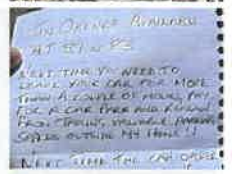 TIN OPENER AVAILABLE
AT 
NEXT TIME YOU NEED TO
LEAVE YOUR CAR FOR MORE
THAN A COUPLE OF HOURS, PAY
FOR A CAR PARK AND REFRAIN
FROM STEALING VALUABLE PARKING
SPACES OUTSIDE MY HOME !!
NEXT TIME THE CAN OPENER